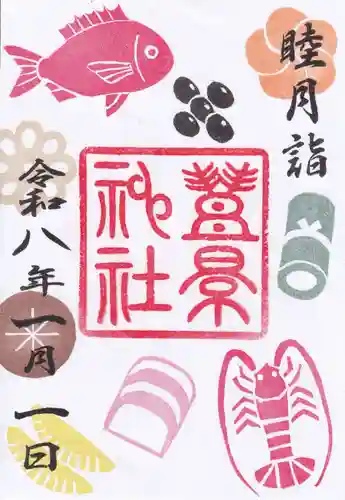 睦月詣
蠶影
神社
令和八年一月一日